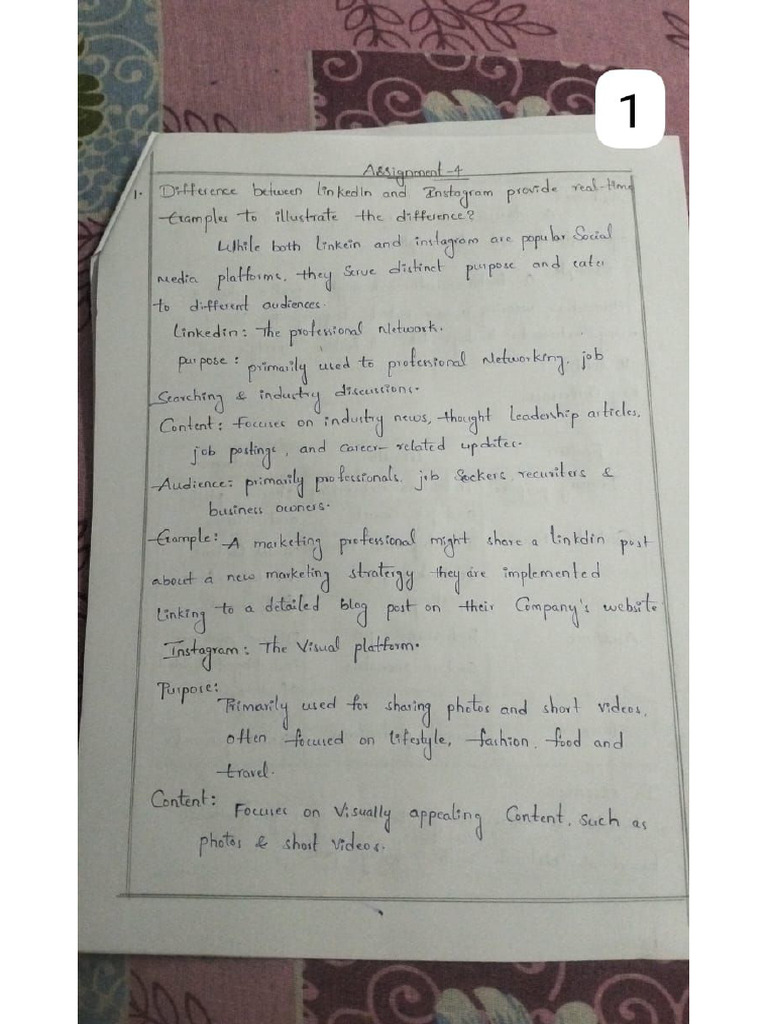 1
Assignment-4
1. Difference between linkedIn and Instagram provide real-time
Examples to illustrate the difference?
While both linkein and instagram are popular Social
media platforms, they serve distinct purpose and cater
to different audiences.
Linkedin: The professional Network.
purpose: primarily used to professional Networking, job
Searching & industry discussions.
Content: focuses on industry news, thought leadership articles,
job postings, and career-related updates.
Audience: primarily professionals, job seekers, recuriters &
business owners.
Example: A marketing professional might share a linkdin post
about a new marketing stratergy they are implemented
linking to a detailed blog post on their Company's website
Instagram: The Visual platform.
Purpose:
Primarily used for sharing photos and short videos,
often focused on lifestyle, fashion, food and
travel.
Content:
Focuses on Visually appealing Content, such as
photos & short videos.